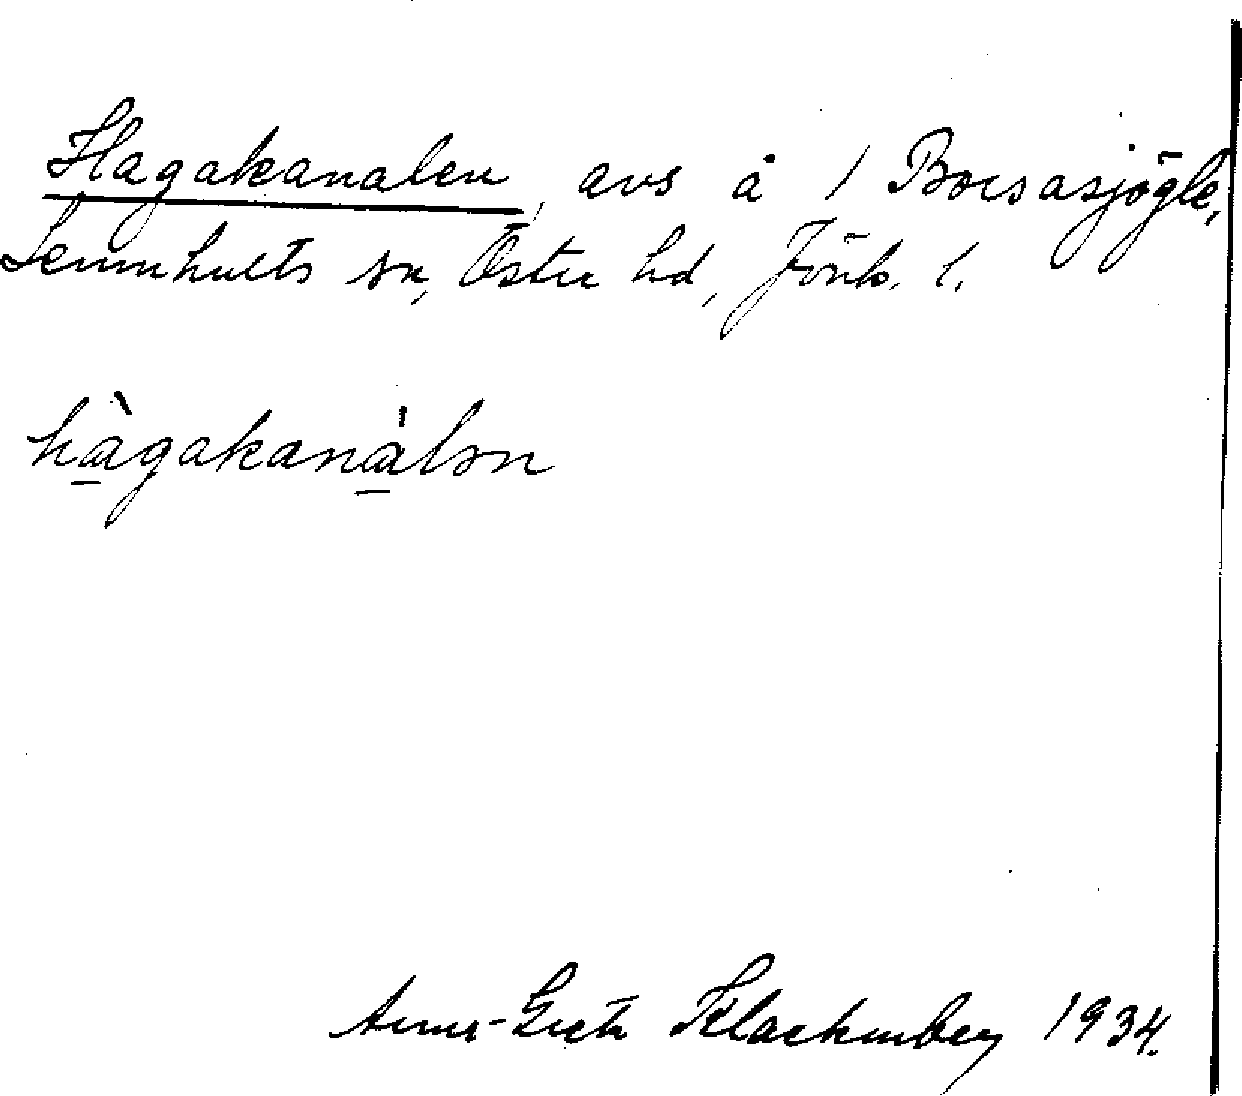 Hagakanalen, avs å 1 Boesasjögle,
Lemnhults sn, Östra hd, Jönk. l.
hàgakanálən
Anna-Greta Klackenberg 1934.